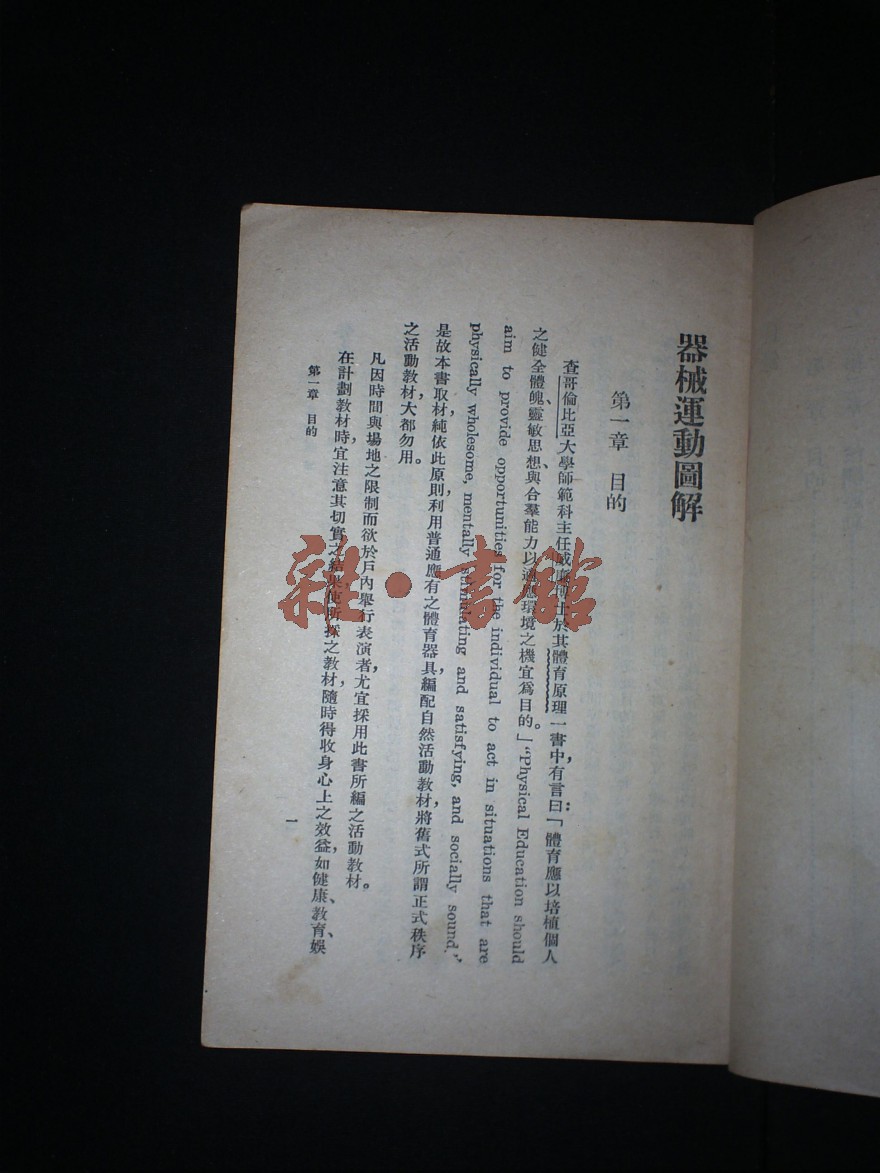 器械運動圖解
第一章 目的
查哥倫比亞大學師範科主任威廉博士於其體育原理一書中，有言曰：「體育應以培植個人
之健全體魄、靈敏思想與合羣能力以適應環境之機宜爲目的。」“Physical Education should
aim to provide opportunities for the individual to act in situations that are
physically wholesome, mentally stimulating and satisfying, and socially sound.”
是故本書取材，純依此原則，利用普通應有之體育器具，編配自然活動教材，將舊式所謂正式秩序
之活動教材，大都勿用。
凡因時間與場地之限制而欲於戶內舉行表演者，尤宜採用此書所編之活動教材。
在計劃教材時，宜注意其切實之結果，使所採之教材，隨時得收身心上之效益，如健康、教育、娛
第一章 目的
一
雜·書館